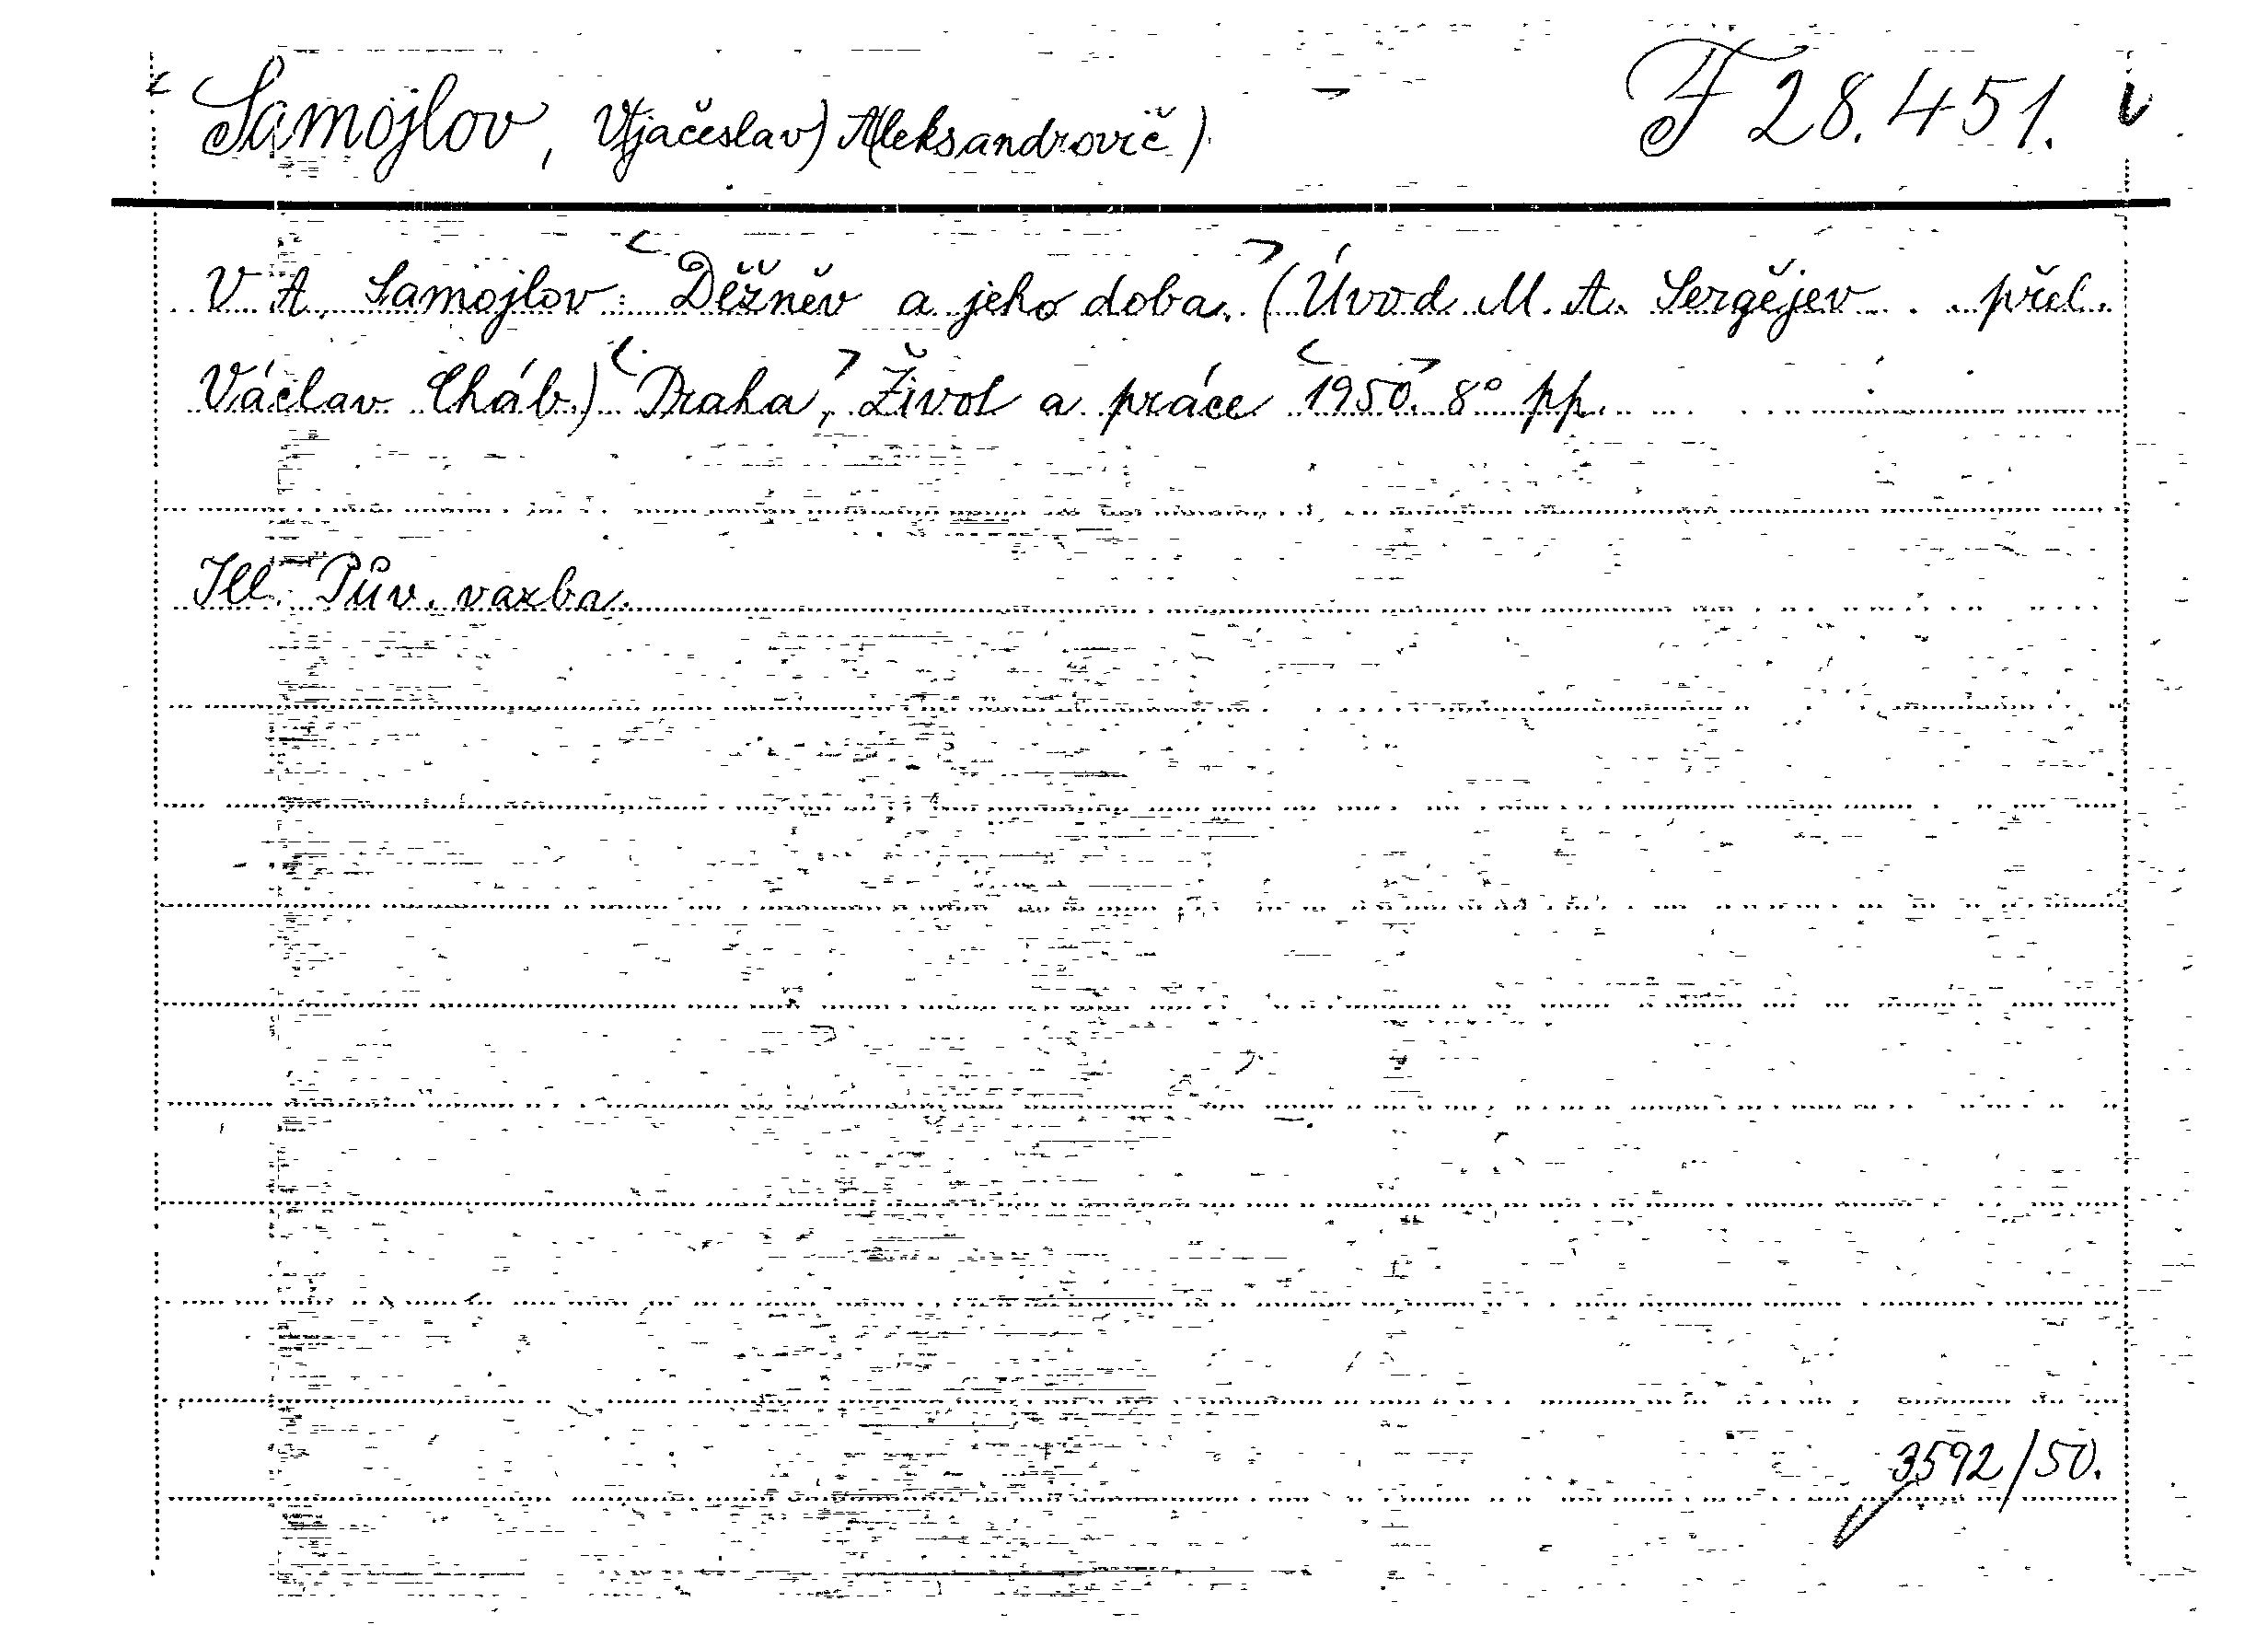 Samojlov, V(jačeslav) A(leksandrovič). F 28.451.
V. A. Samojlov: Děžněv a jeho doba. (Úvod M. A. Sergějev. přel.
Václav Cháb.) Praha, Život a práce 1950. 8° pp.
Ill. Pův. vazba.
3592/50.